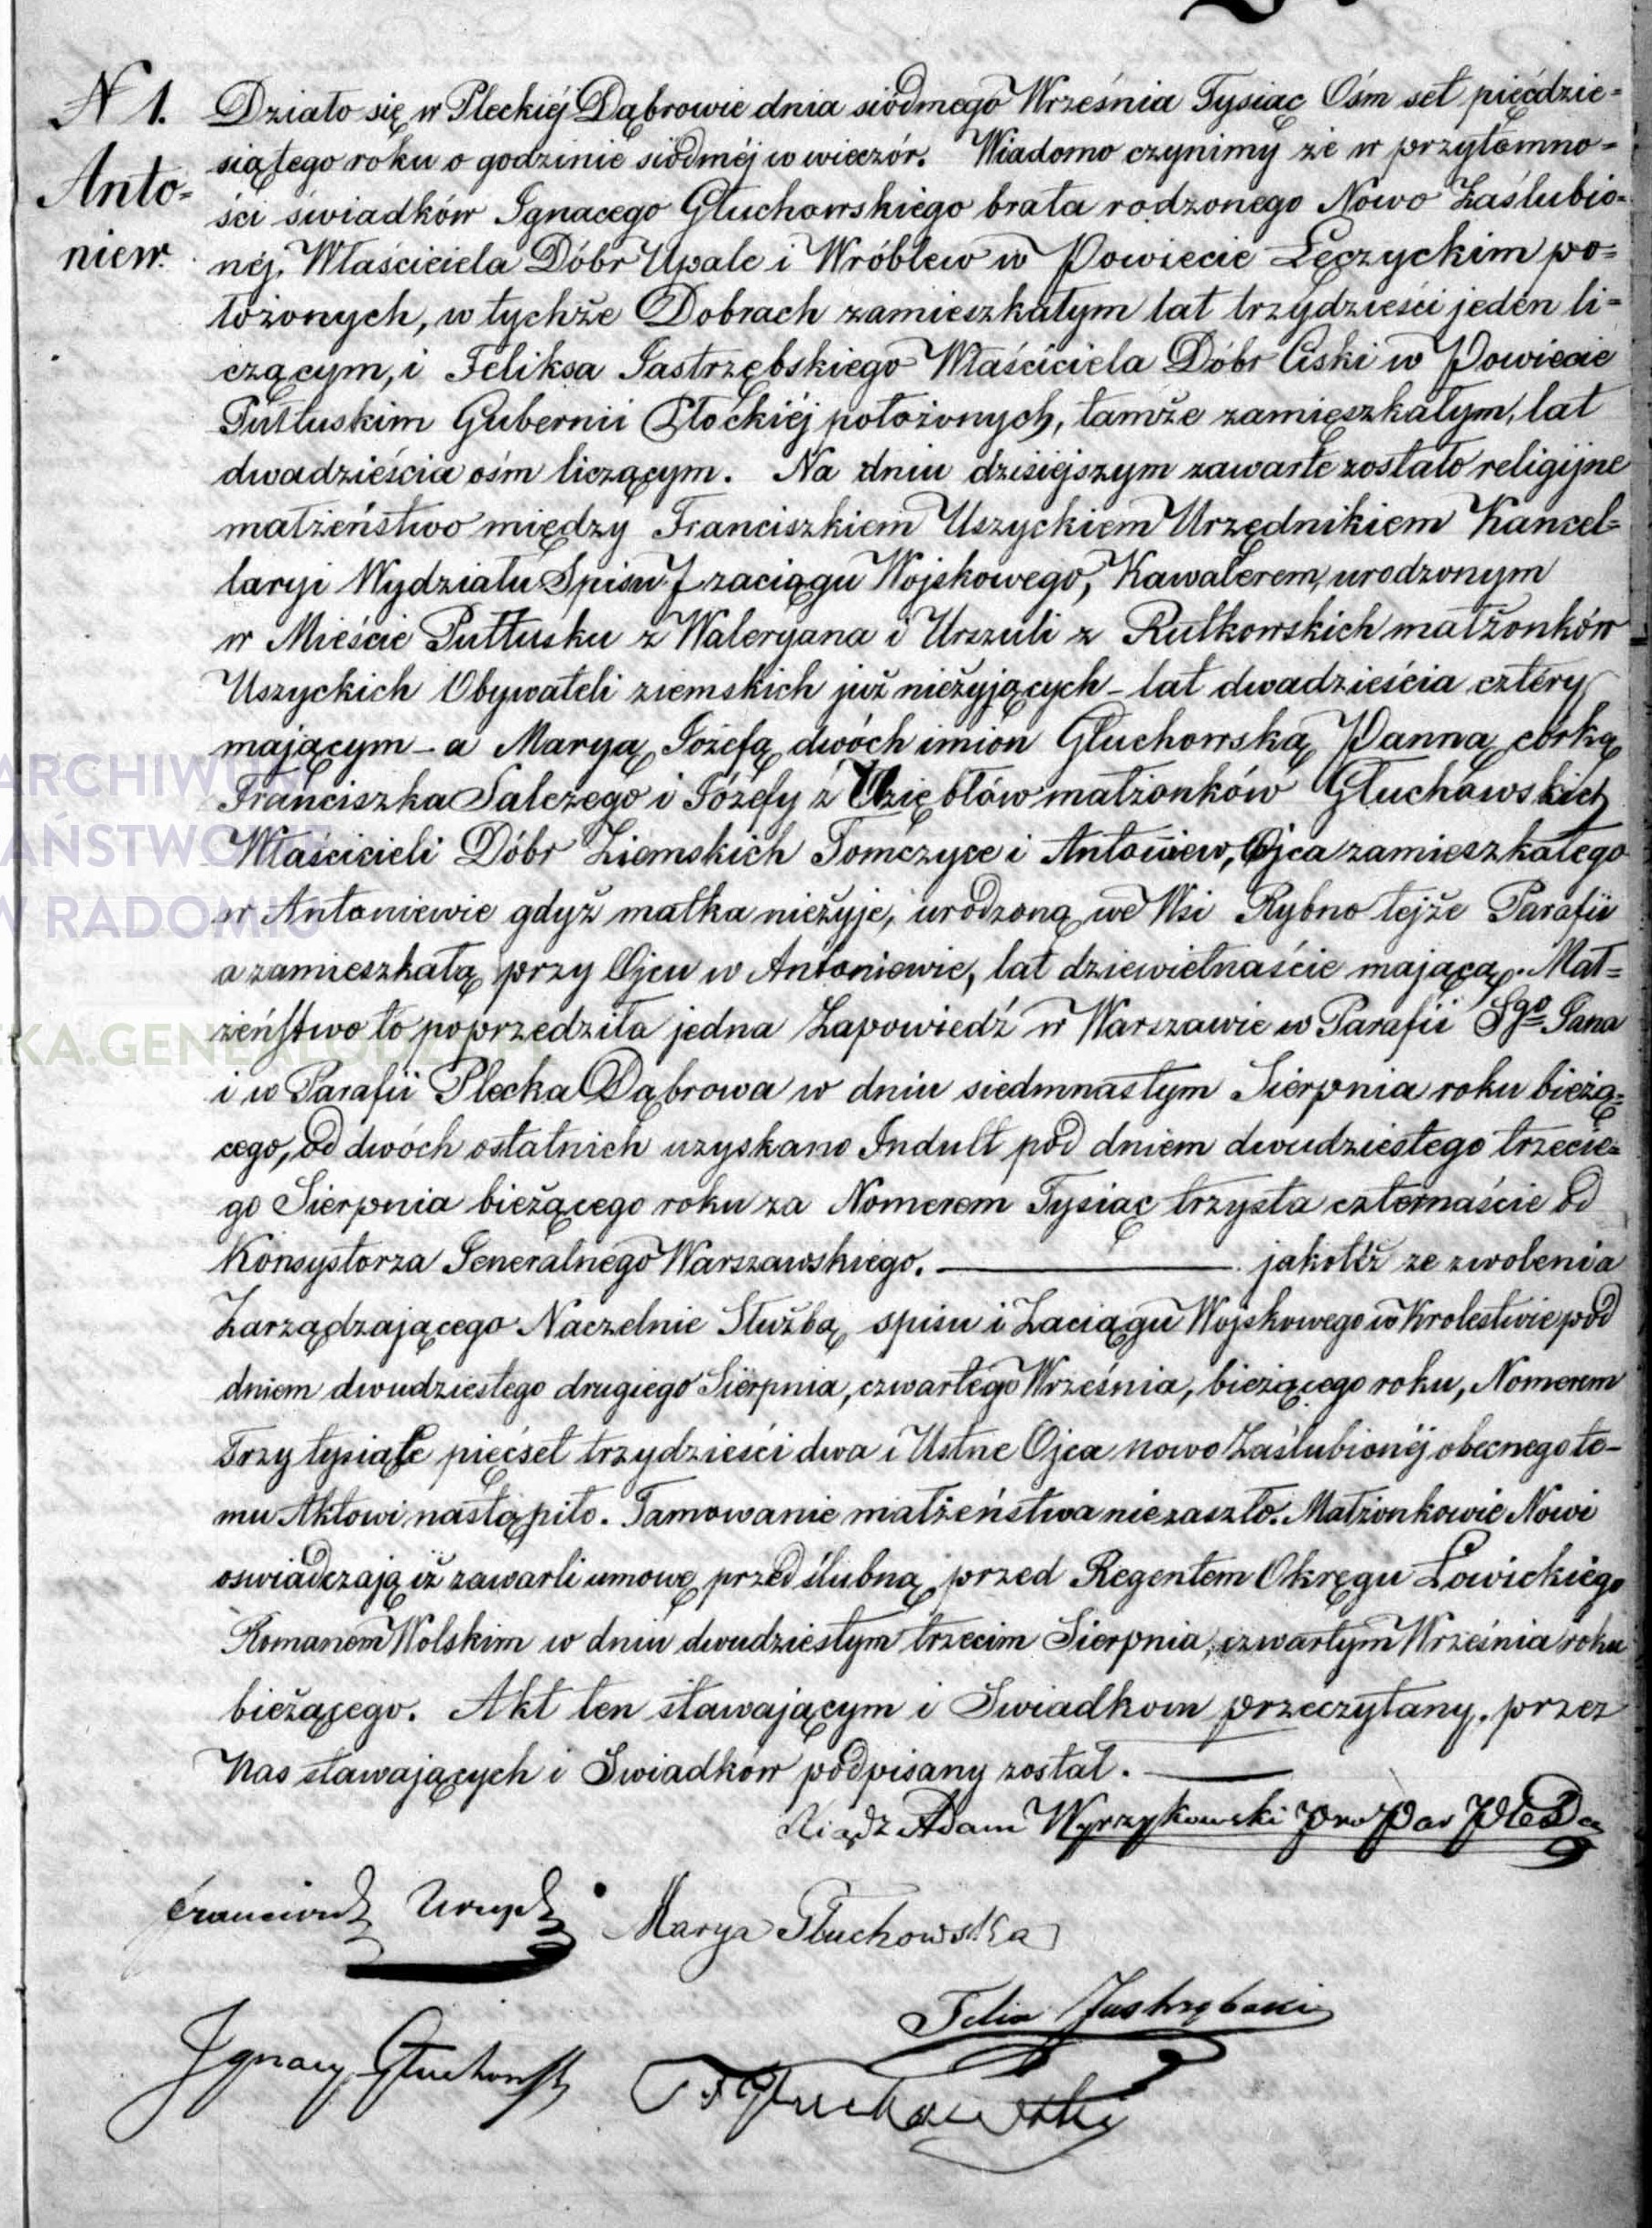 N 1.
Anto=
niew.
Działo się w Pleckiéj Dąbrowie dnia siódmego Września Tysiąc Ośm set pięćdzie=
siątego roku o godzinie siódméj w wieczór. Wiadomo czynimy że w przytomno=
ści świadków Ignacego Głuchowskiego brata rodzonego Nowo Zaślubio=
néj, Właściciela Dóbr Upale i Wróblew w Powiecie Łęczyckim po=
łożonych, w tychże Dobrach zamieszkałym lat trzydzieści jeden li=
czącym, i Feliksa Jastrzębskiego Właściciela Dóbr Ciski w Powiecie
Pułtuskim Gubernii Płockiéj położonych, tamże zamieszkałym, lat
dwadzieścia ośm liczącym. Na dniu dzisiejszym zawarte zostało religijne
małżeństwo między Franciszkiem Uszyckiem Urzędnikiem Kancel=
laryi Wydziału Spisu J zaciągu Wojskowego, Kawalerem, urodzonym
w Mieście Pułtusku z Waleryana i Urszuli z Rutkowskich małżonków
Uszyckich Obywateli ziemskich już nieżyjących - lat dwadzieścia cztéry
mającym - a Maryą Józefą dwóch imion Głuchowską Panną córką
Franciszka Salezego i Józefy z małżonków Głuchowskich
Właścicieli Dóbr Ziemskich Tomczyce i Antoniew, Ojca zamieszkałego
w Antoniewie gdyż matka nieżyje, urodzoną we Wsi Rybno tejże Parafii
a zamieszkałą przy Ojcu w Antoniewie, lat dziewietnaście mającą. Mał=
żeństwo to poprzedziła jedna Zapowiedź w Warszawie w Parafii Sgo Jana
i w Parafii Plecka Dąbrowa w dniu siedmnastym Sierpnia roku bieżą=
cego, od dwóch ostatnich uzyskano Indult pod dniem dwudziestego trzecie=
go Sierpnia bieżącego roku za Nomerem Tysiąc trzysta czternaście od
Konsystorza Generalnego Warszawskiego. jakoteż ze zwolenia
Zarządzającego Naczelnie Służbą spisu i Zaciągu Wojskowego w Krolestwie pod
dniem dwudziestego drugiego Sierpnia, czwartego Września, bieżącego roku, Nomerem
Trzy tysiące pięćset trzydzieści dwa i Ustne Ojca nowo Zaślubionéj obecnego te-
mu Aktowi nastąpiło. Tamowanie małżeństwa niezaszło. Małżonkowie Nowi
oswiadczają iż zawarli umowę przed ślubną przed Regentem Okręgu Łowickiego
Romanem Wolskim w dniu dwudziestym trzecim Sierpnia, czwartym Września roku
bieżącego. Akt ten stawającym i Swiadkom przeczytany, przez
Nas stawających i Swiadków podpisany został.
Xiądz Adam Wyrzykowski
Marya Głuchowska
Felix Jastrzębski
Ignacy Głuchowski
F Głuchowski
ARCHIWUM
PAŃSTWOWE
W RADOMIU